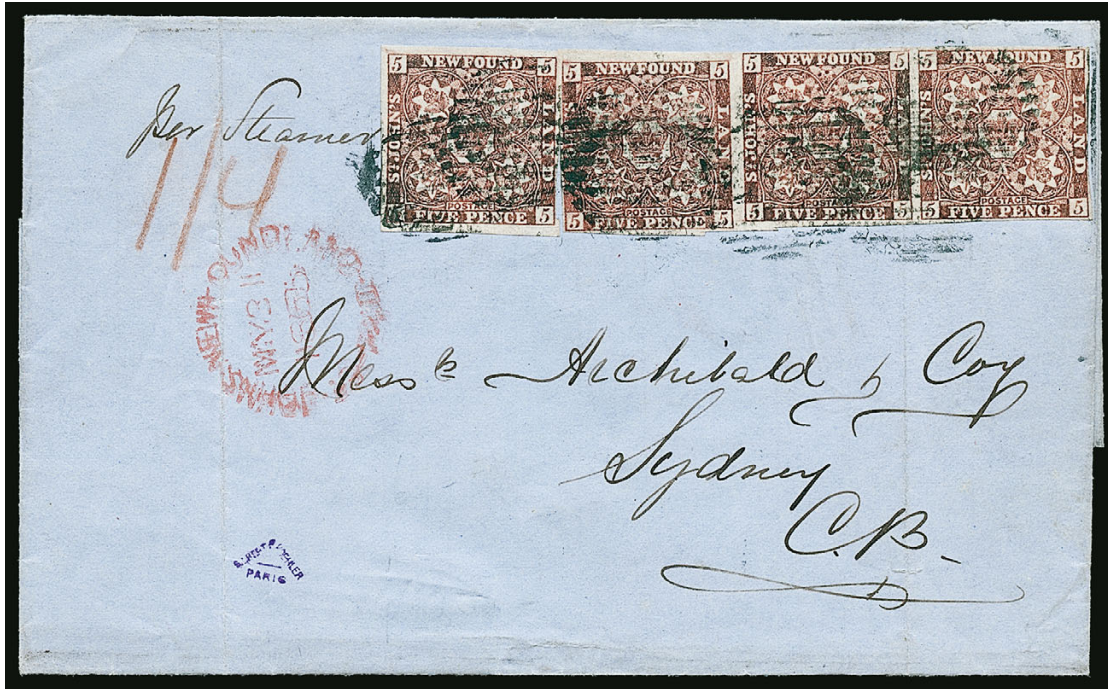 5 NEWFOUND 5
ST. JOHN'S
LAND
POSTAGE
5 FIVE PENCE 5
5 NEWFOUND 5
ST. JOHN'S
LAND
POSTAGE
5 FIVE PENCE 5
5 NEWFOUND 5
ST. JOHN'S
LAND
POSTAGE
5 FIVE PENCE 5
5 NEWFOUND 5
ST. JOHN'S
LAND
POSTAGE
5 FIVE PENCE 5
Per Steamer
1/4
NEWFOUNDLAND
MAY 31
Mess rs Archibald & Coy
Sydney
C.B.
PARIS